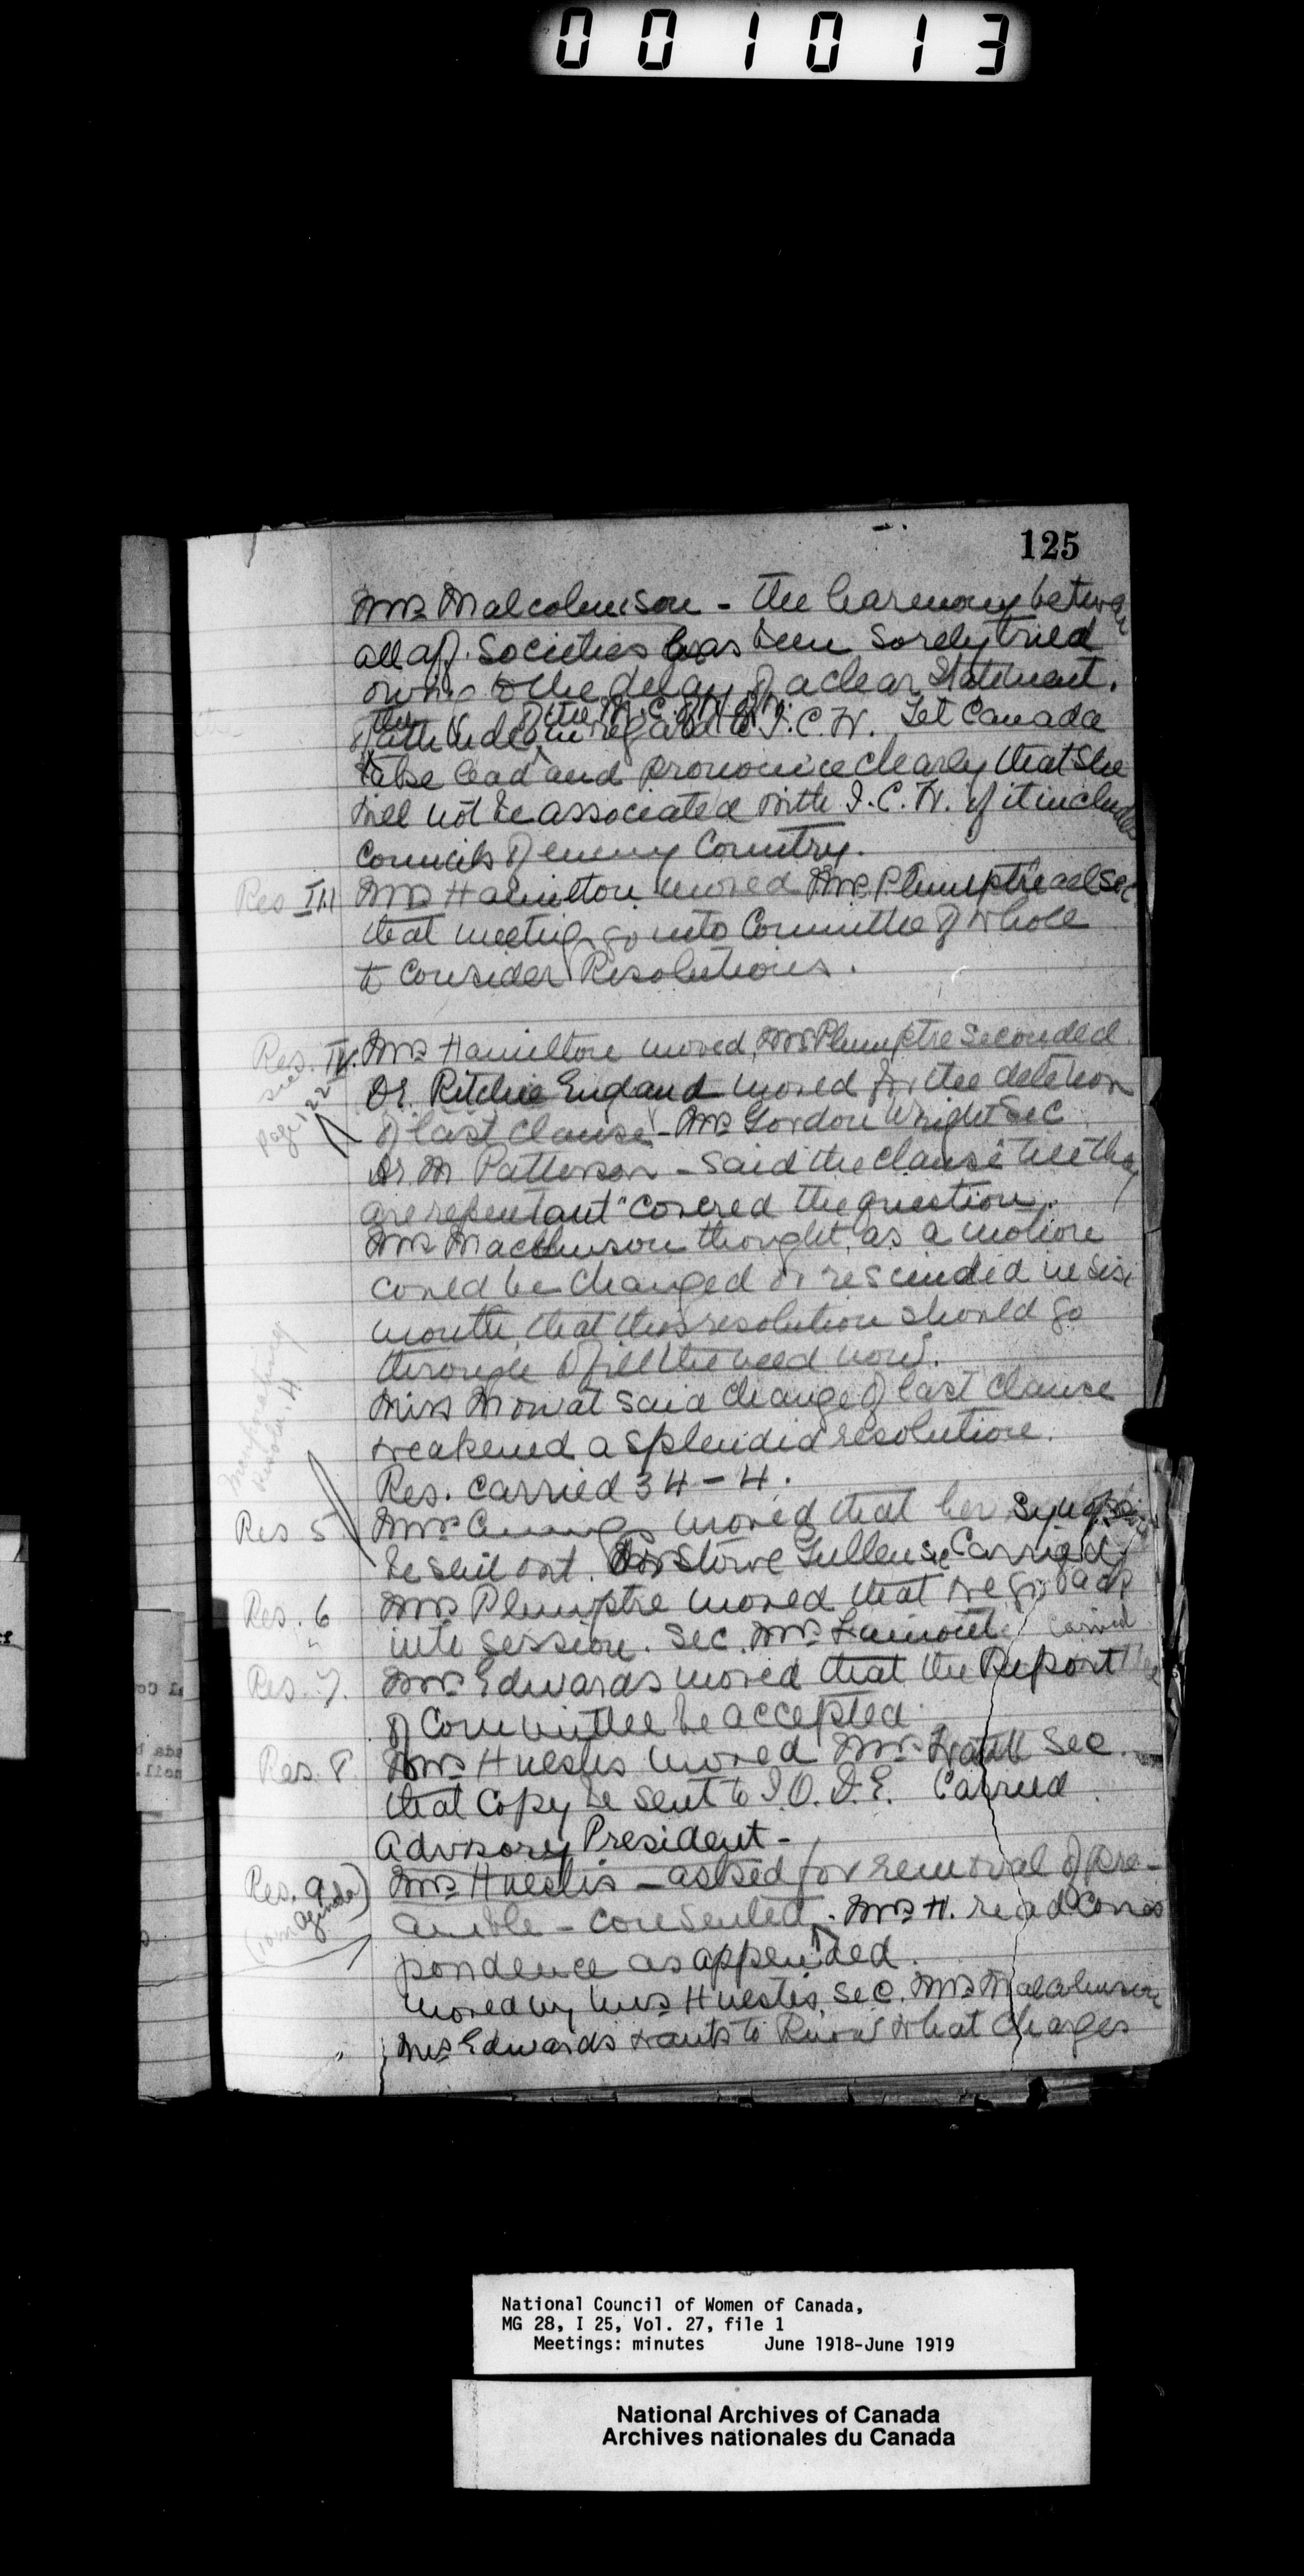 001013
125
Mrs Malcolmson - the harmony between
all aff. Societies has been sorely tried
owing to the delay of a clear Statement.
the of the N.C. of W. of
attitude in regard to I.C.W. Let Canada
take lead and pronounce clearly that she
will not be associated with I.C.W. if it includes
Councils of enemy Country.
Res III Mrs Hamilton moved Mrs Plumptre sec
that meeting go into Committee of Whole
to Consider Resolutions.
Res. IV. Mrs Hamilton moved, Mrs Plumptre seconded.
see page 122
Dr. Ritchie England moved for the deletion
of last clause - Mrs Gordon Wright Sec
Dr. M Patterson - said the clause "till they
are repentant" covered the question.
Mrs thought, as a motion
could be changed or rescinded in six
month, that this resolution should go
through & fill the need now.
Miss Mowat said change of last clause
weakened a splendid resolution.
Res. carried 34-4.
Res 5 Mrs moved that her Synopsis
be sent out. Dr Stowe Gullen Sec Carried
Res. 6 Mrs Plumptre moved that we go back
into session. Sec. Mrs Carried
Res. 7. Mrs Edwards moved that the Report
of Committee be accepted.
Res. 8 Mrs Huestis moved Mrs Sec.
that Copy be sent to I.O.D.E. Carried.
Advisory President -
Res. 9 Mrs Huestis - asked for removal of pre-
(10 on agenda)
amble - consented. Mrs H. read Corres
pondence as appended.
Moved by Mrs Huestis, Sec. Mrs
Mrs Edwards wants to know what charges
National Council of Women of Canada,
MG 28, I 25, Vol. 27, file 1
Meetings: minutes June 1918-June 1919
National Archives of Canada
Archives nationales du Canada